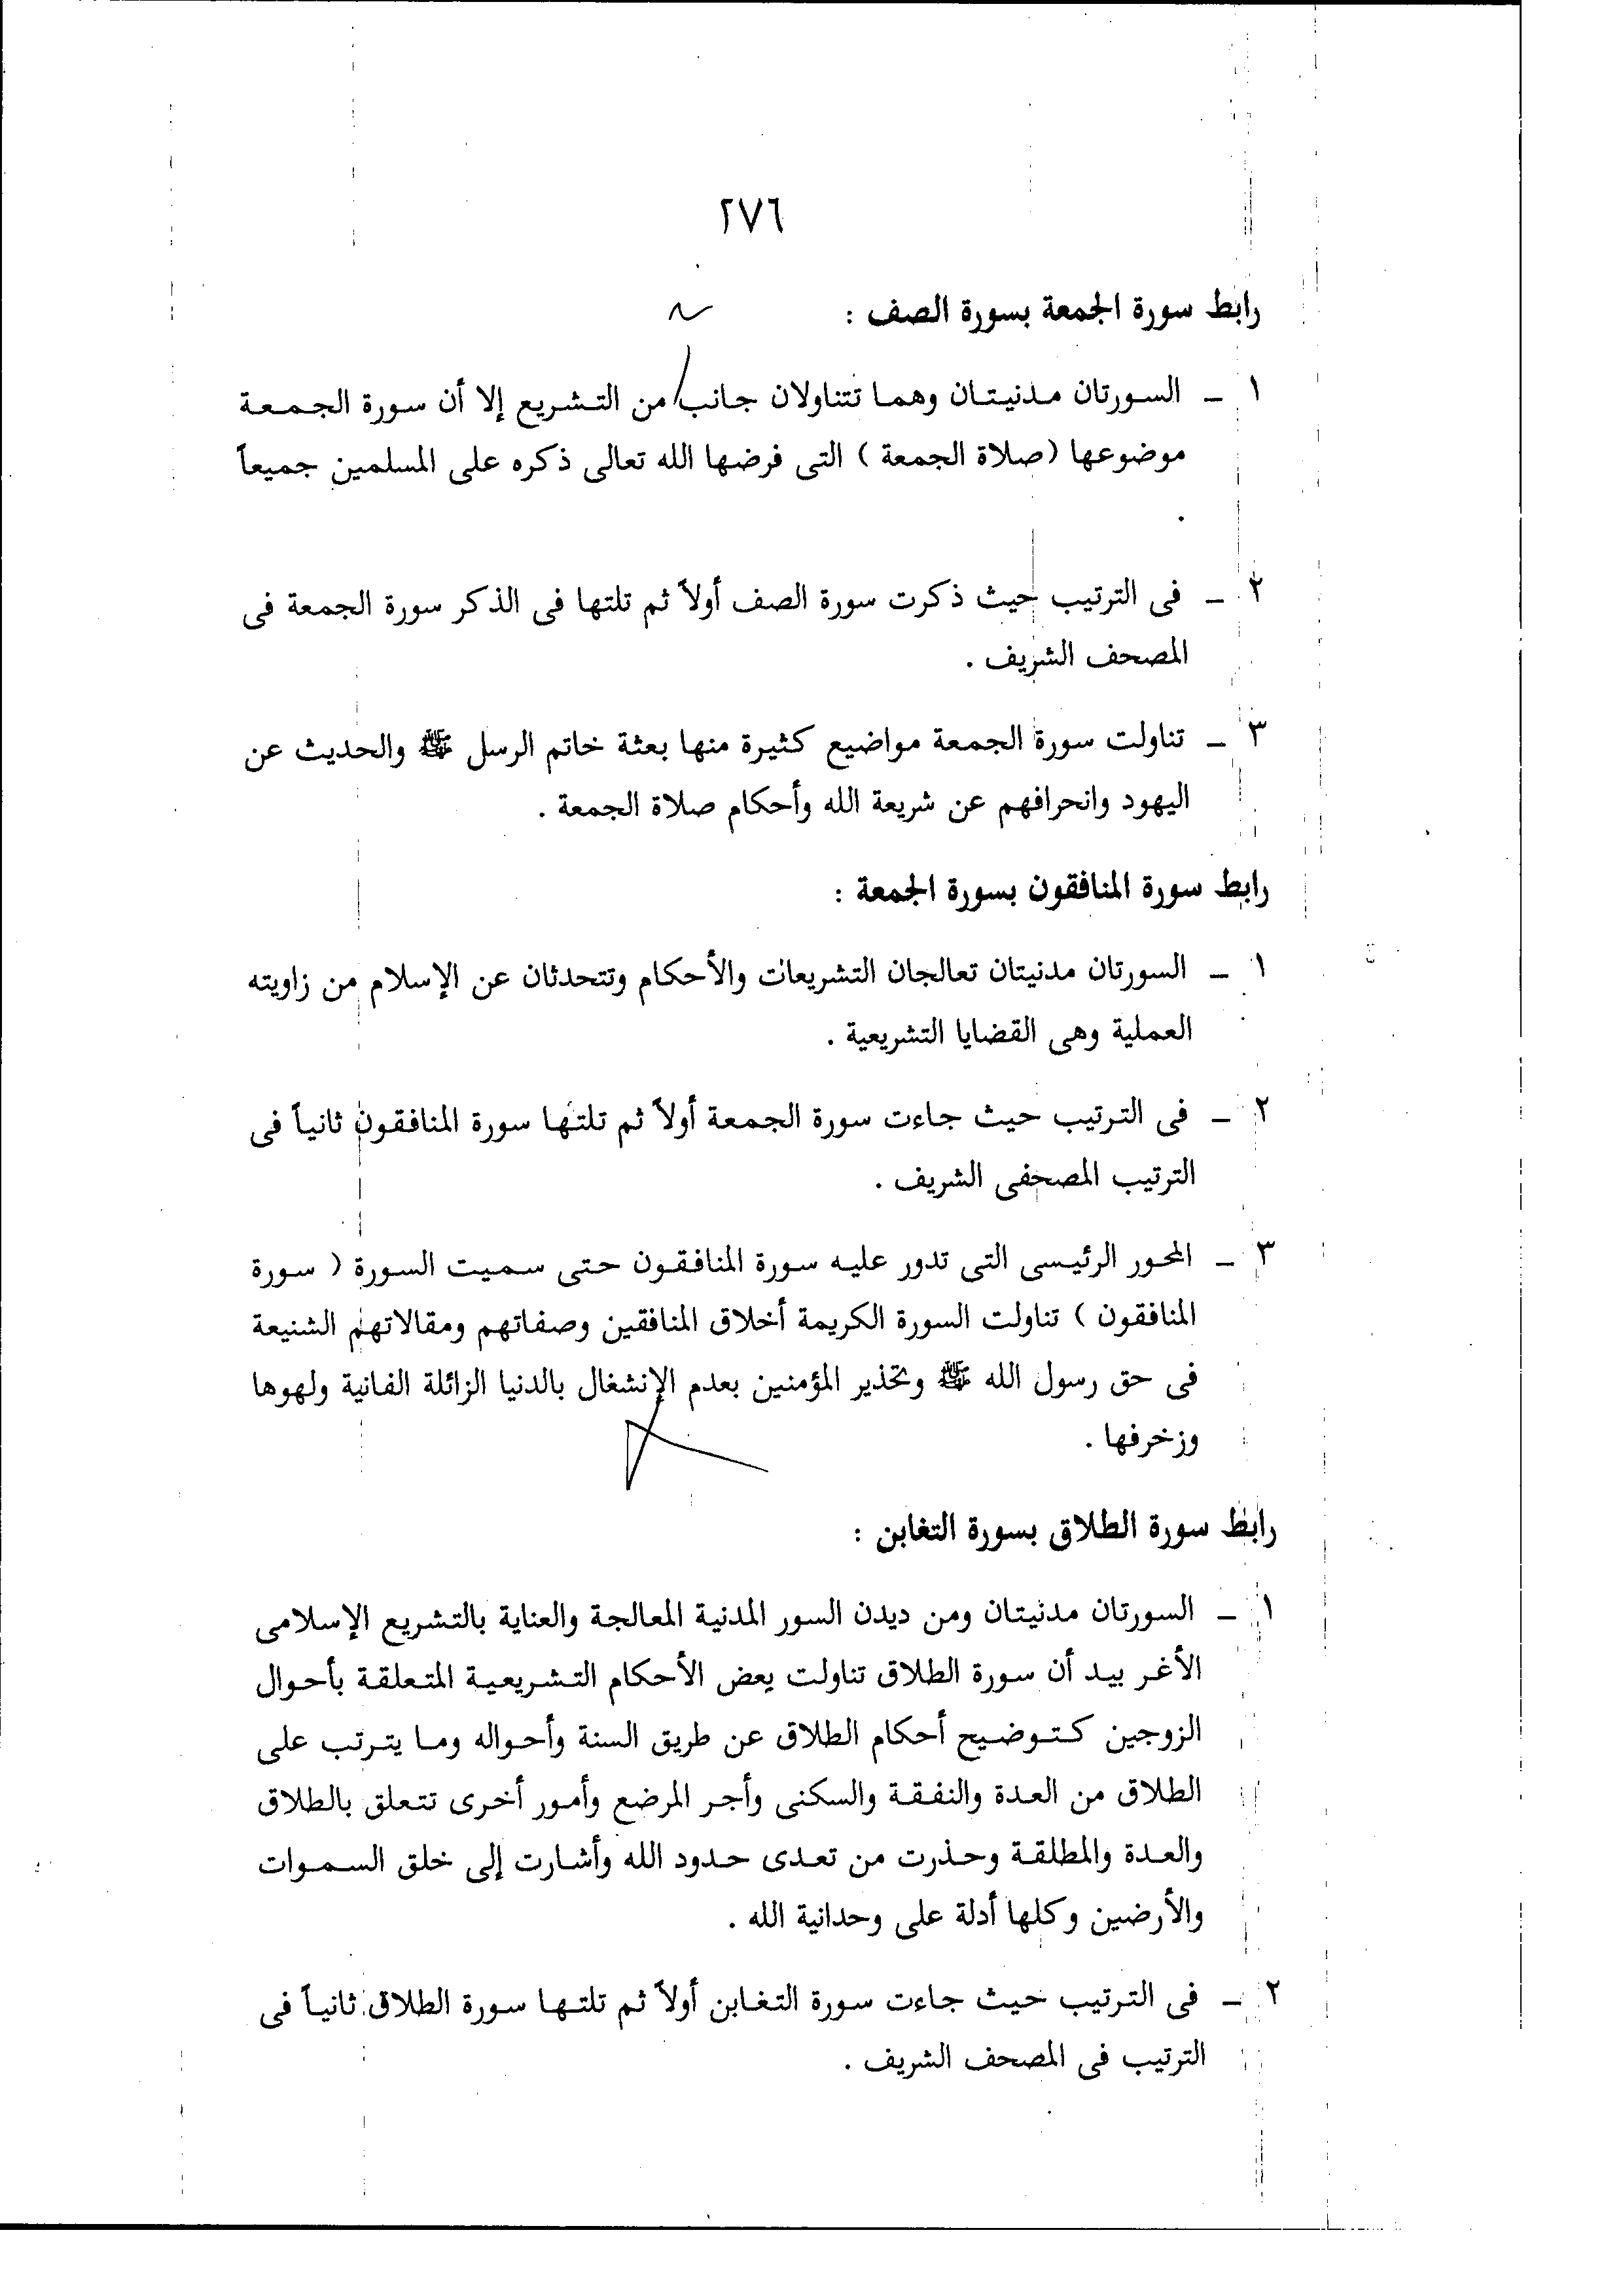 ٢٧٦
رابط سورة الجمعة بسورة الصف :
١ ـ السورتان مدنيتان وهما تتناولان جانب من التشريع إلا أن سورة الجمعة
موضوعها (صلاة الجمعة ) التى فرضها الله تعالى ذكره على المسلمين جميعاً
.
٢ ـ فى الترتيب حيث ذكرت سورة الصف أولاً ثم تلتها فى الذكر سورة الجمعة فى
المصحف الشريف .
٣ ـ تناولت سورة الجمعة مواضيع كثيرة منها بعثة خاتم الرسل ﷺ والحديث عن
اليهود وانحرافهم عن شريعة الله وأحكام صلاة الجمعة .
رابط سورة المنافقون بسورة الجمعة :
١ ـ السورتان مدنيتان تعالجان التشريعات والأحكام وتتحدثان عن الإسلام من زاويته
العملية وهى القضايا التشريعية .
٢ ـ فى الترتيب حيث جاءت سورة الجمعة أولاً ثم تلتها سورة المنافقون ثانياً فى
الترتيب المصحفى الشريف .
٣ ـ المحور الرئيسى التى تدور عليه سورة المنافقون حتى سميت السورة ( سورة
المنافقون ) تناولت السورة الكريمة أخلاق المنافقين وصفاتهم ومقالاتهم الشنيعة
فى حق رسول الله ﷺ وتحذير المؤمنين بعدم الإنشغال بالدنيا الزائلة الفانية ولهوها
وزخرفها .
رابط سورة الطلاق بسورة التغابن :
١ ـ السورتان مدنيتان ومن ديدن السور المدنية المعالجة والعناية بالتشريع الإسلامى
الأغر بيد أن سورة الطلاق تناولت بعض الأحكام التشريعية المتعلقة بأحوال
الزوجين كتوضيح أحكام الطلاق عن طريق السنة وأحواله وما يترتب على
الطلاق من العدة والنفقة والسكنى وأجر المرضع وأمور أخرى تتعلق بالطلاق
والعدة والمطلقة وحذرت من تعدى حدود الله وأشارت إلى خلق السموات
والأرضين وكلها أدلة على وحدانية الله .
٢ ـ فى الترتيب حيث جاءت سورة التغابن أولاً ثم تلتها سورة الطلاق ثانياً فى
الترتيب فى المصحف الشريف .